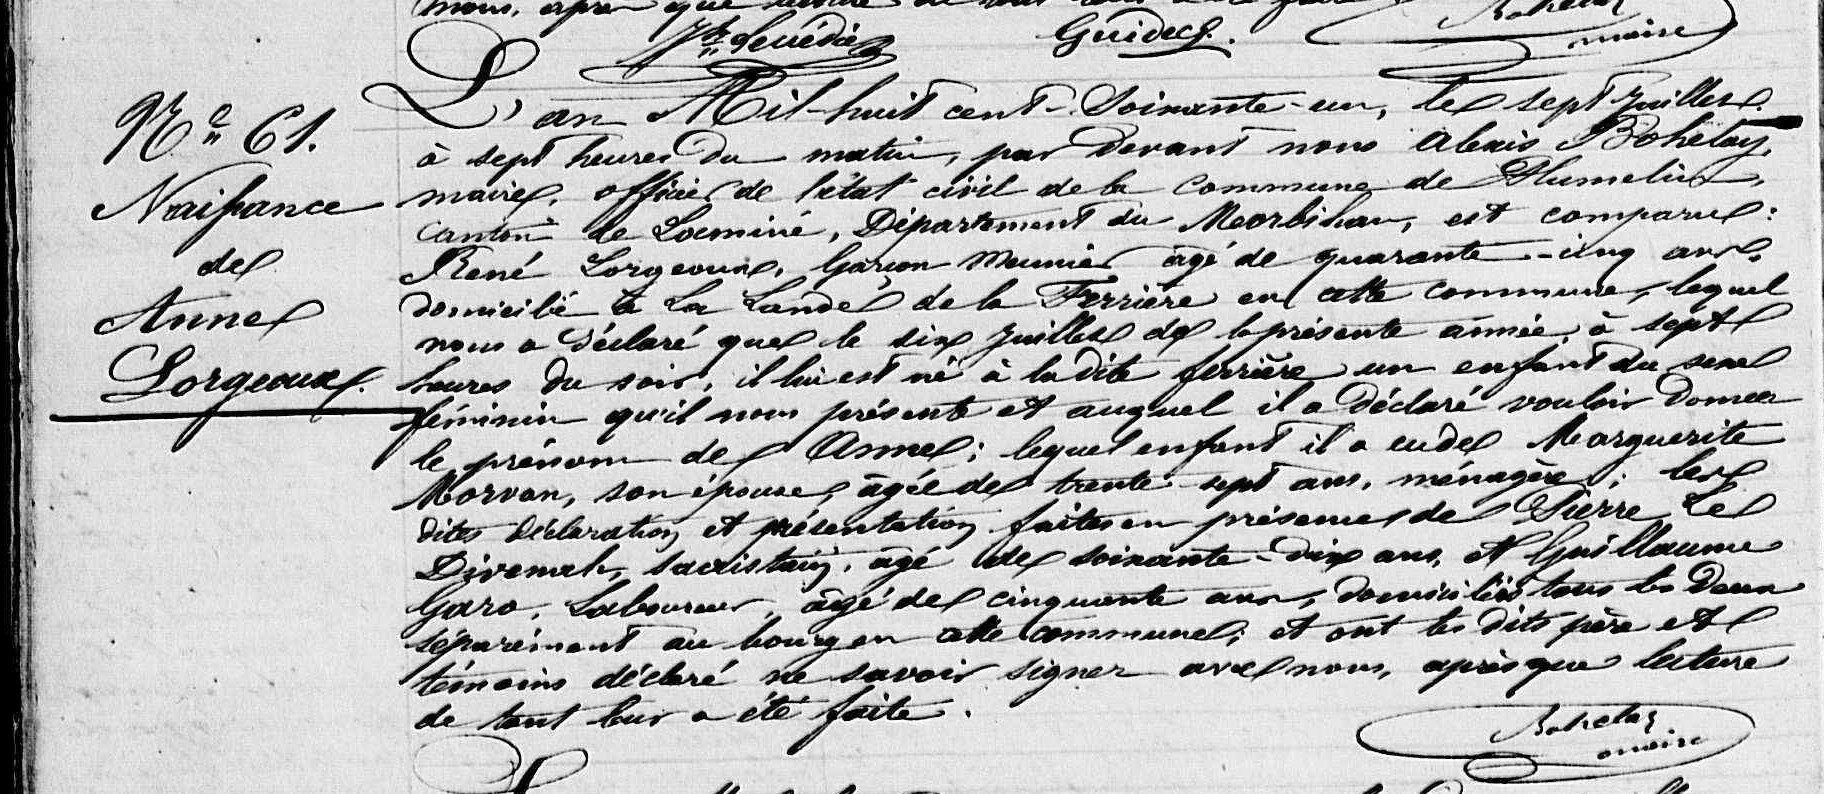 Guidec
maire
N° 61.
Naissance
de
Anne
Lorgeoux.
L'an Mil-huit cent-Soixante-un, le sept Juillet
à sept heures du matin, par devant nous Alexis Bohelay,
maire, officier de l'état civil de la commune de Plumelin,
canton de Locminé, Département du Morbihan, est comparu:
René Lorgeoux, Garçon Meunier âgé de quarante-cinq ans,
domicilié à La Lande de la Ferrière en cette commune, lequel
nous a déclaré que le six Juillet de la présente année, à sept
heures du soir, il lui est né à la dite ferrière un enfant du sexe
féminin qu'il nous présente et auquel il a déclaré vouloir donner
le prénom de Anne; lequel enfant il a eu de Marguerite
Morvan, son épouse, âgée de trente-sept ans, ménagère; les
dites déclaration et présentation faites en présence de Pierre Le
Divenah, sacristain, âgé de soixante-dix ans, et Guillaume
Garo, Laboureur, âgé de cinquante ans, domiciliés tous les deux
séparément au bourg en cette commune; et ont les dits père et
témoins déclaré ne savoir signer avec nous, après que lecture
de tout leur a été faite.
Bohelay
maire